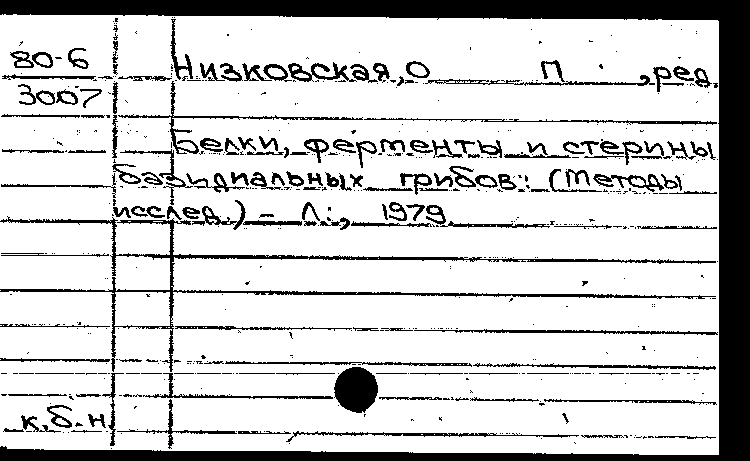 80-6
3007
Низковская, О П , ред.
Белки, ферменты и стерины
базидиальных грибов: (Методы
исслед.) - Л.:, 1979.
к.б.н.